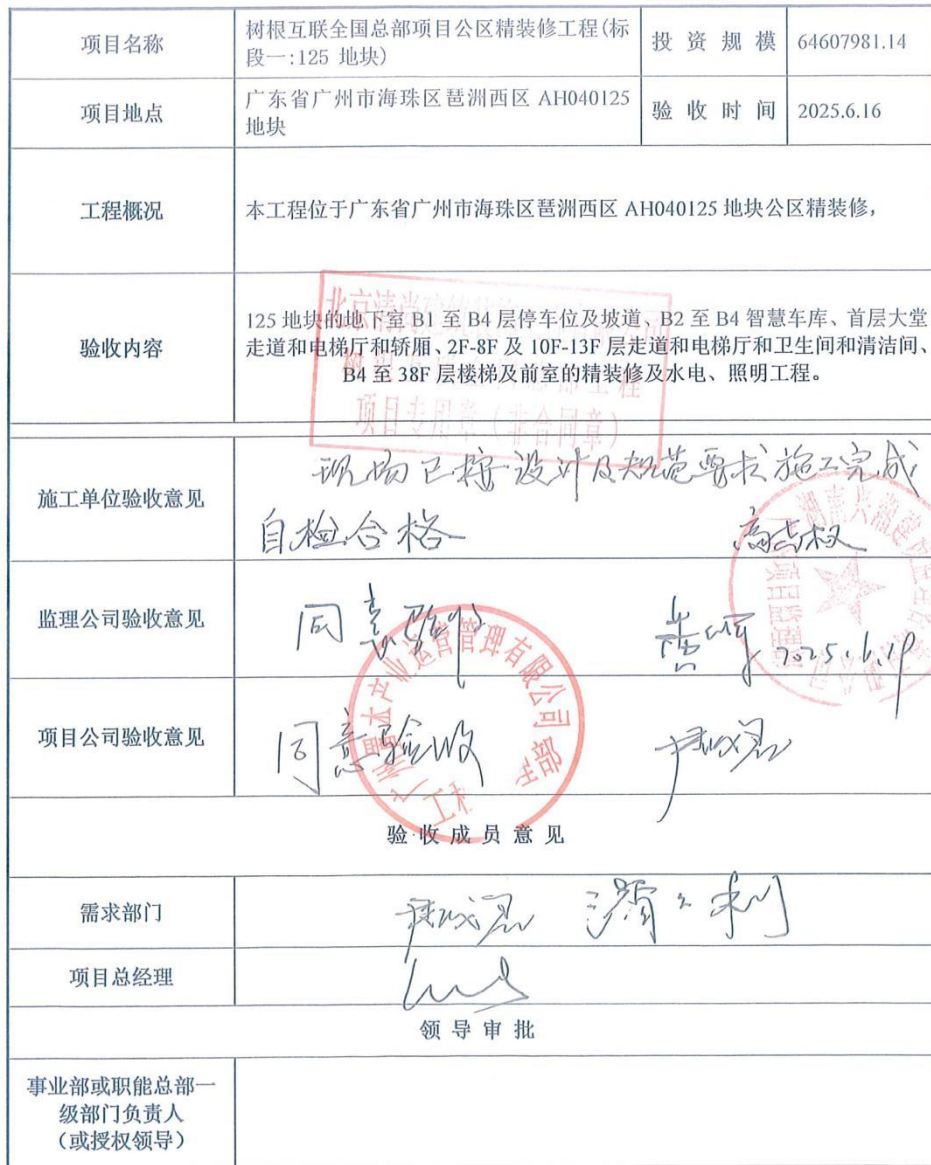 项目名称
树根互联全国总部项目公区精装修工程(标
段一:125 地块)
投 资 规 模
64607981.14
项目地点
广东省广州市海珠区琶洲西区 AH040125
地块
验 收 时 间
2025.6.16
工程概况
本工程位于广东省广州市海珠区琶洲西区 AH040125 地块公区精装修,
验收内容
125 地块的地下室 B1 至 B4 层停车位及坡道、B2 至 B4 智慧车库、首层大堂
走道和电梯厅和轿厢、2F-8F 及 10F-13F 层走道和电梯厅和卫生间和清洁间、
B4 至 38F 层楼梯及前室的精装修及水电、照明工程。
项目专用章(非合同章)
施工单位验收意见
现场已按设计及规范要求施工完成
自检合格
监理公司验收意见
同意验收
2025.6.19
项目公司验收意见
同意验收
产业运营管理有限公司
验收成员意见
需求部门
项目总经理
领导审批
事业部或职能总部一
级部门负责人
(或授权领导)